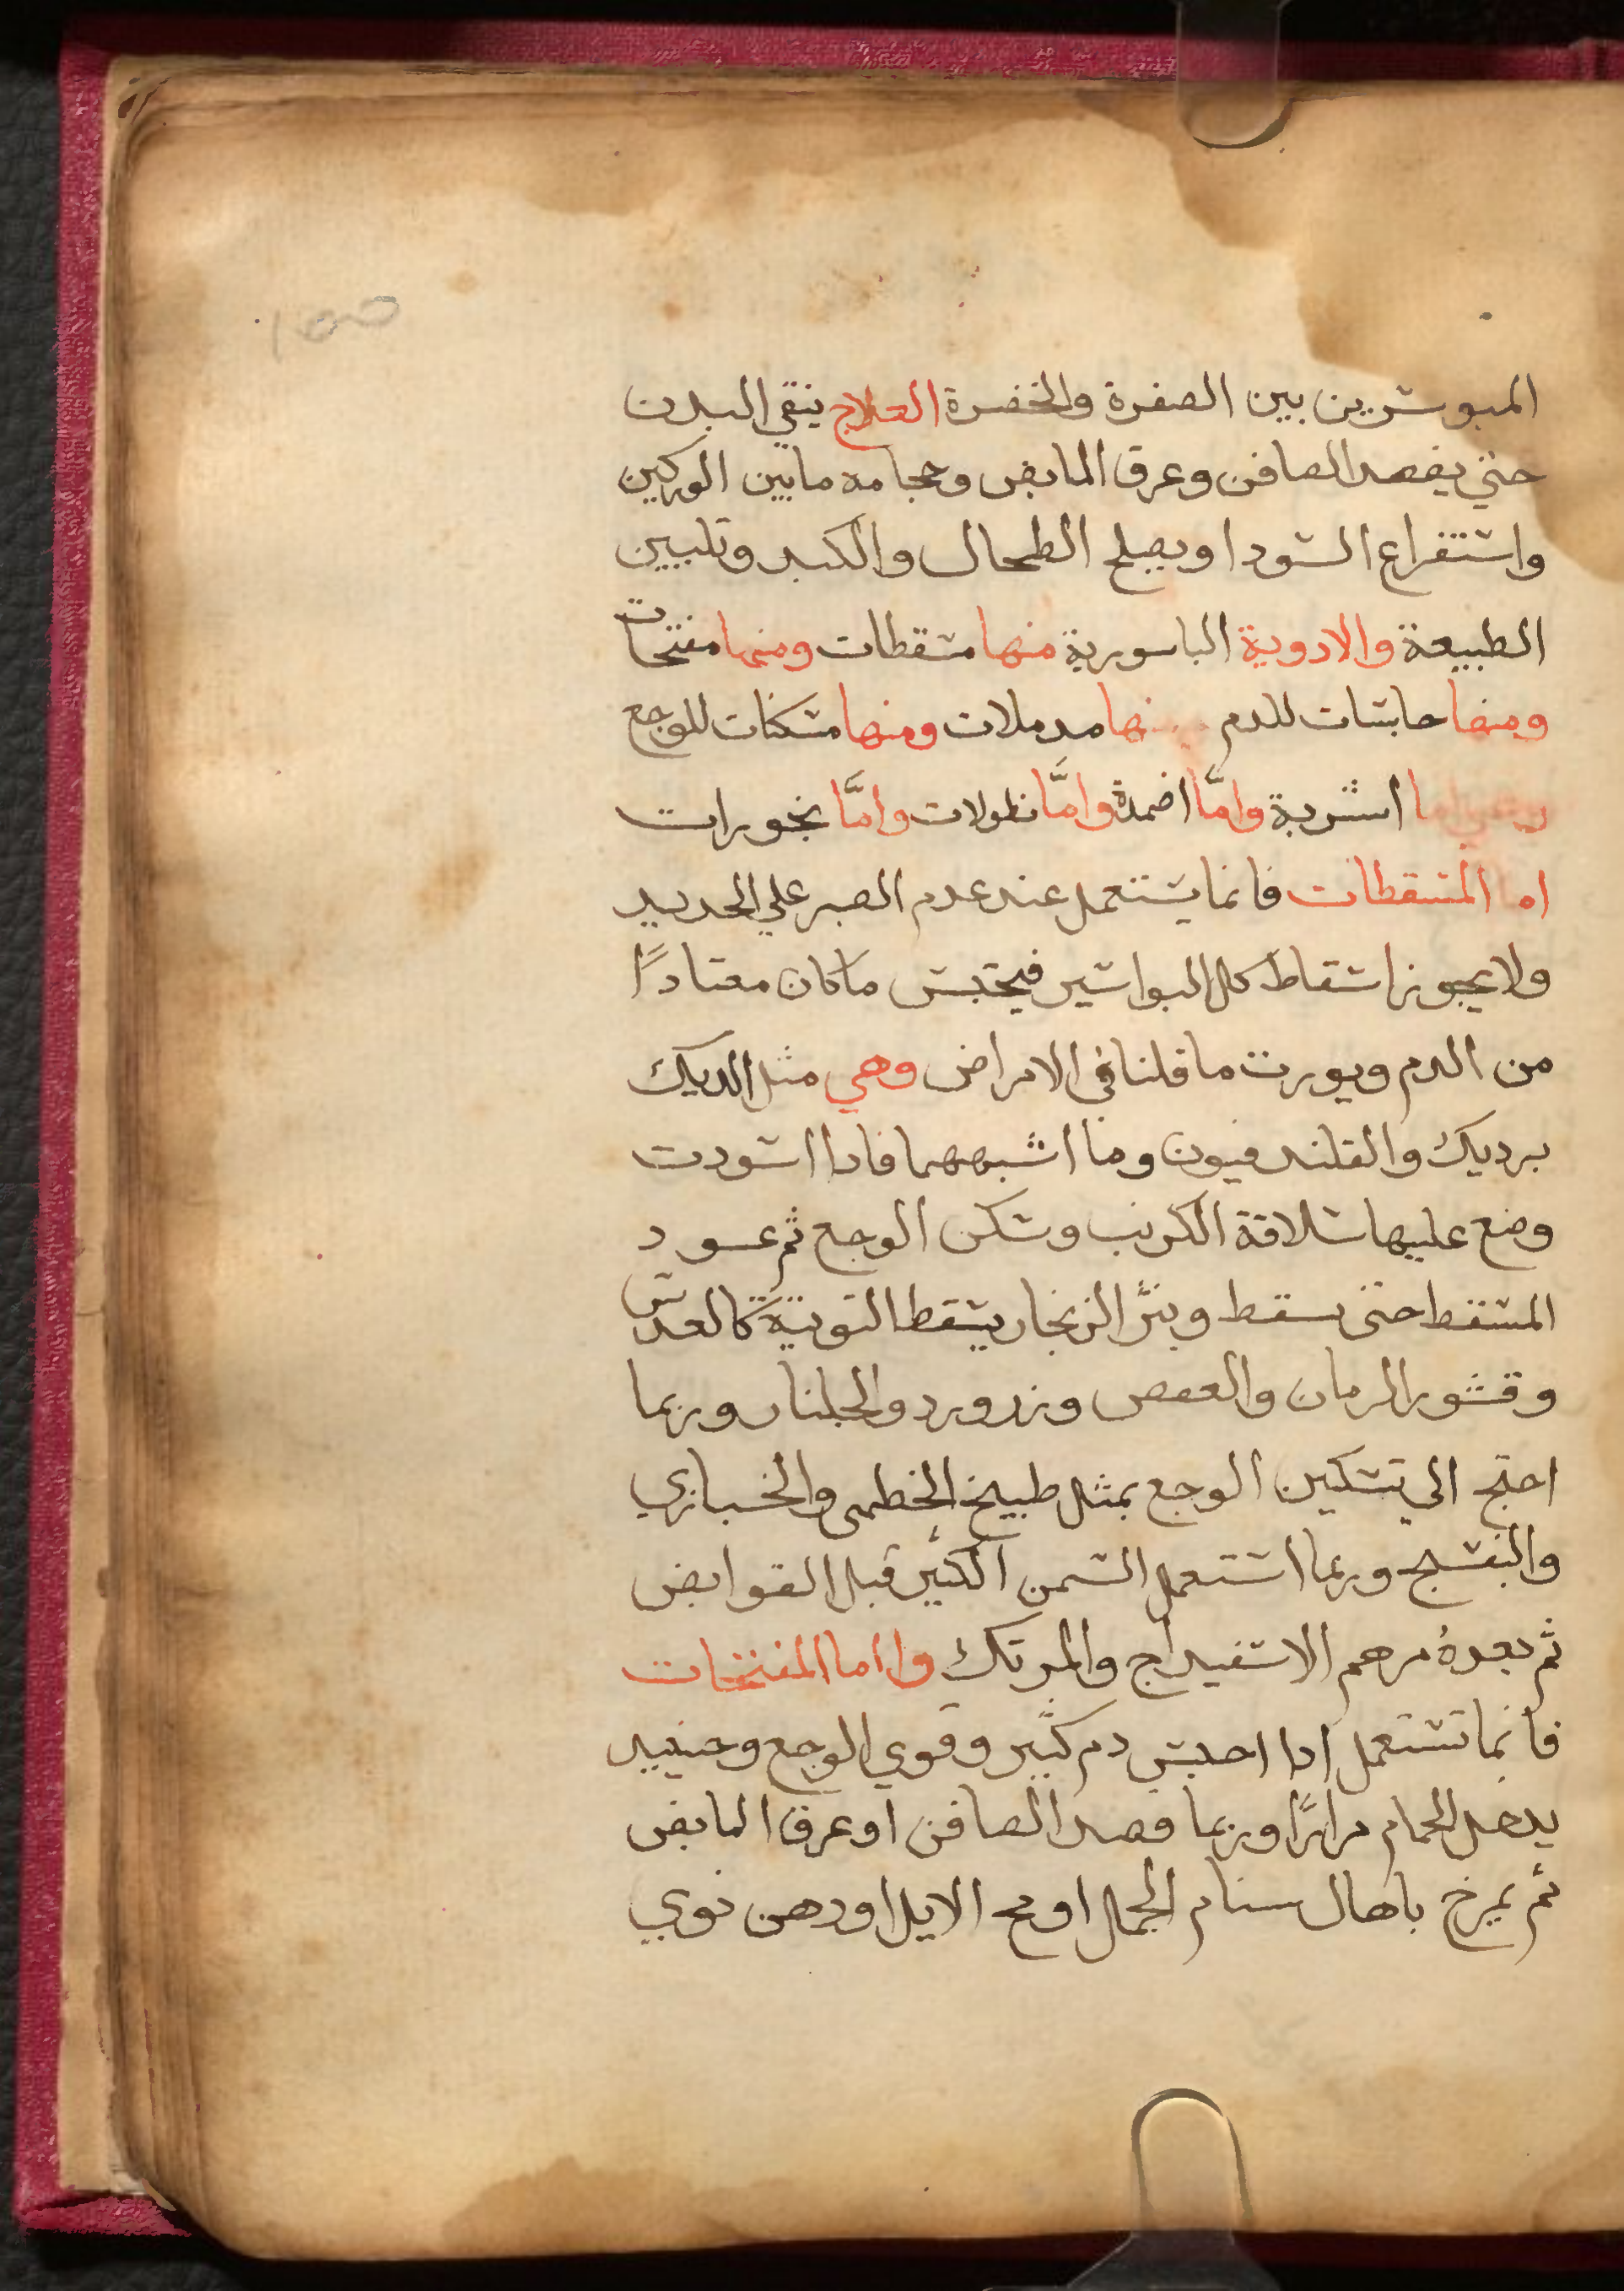 المبوسرين بين الصفرة والخضرة العلاج ينقي البدن
حتي يفصد الصافن وعرق المابض وحجامه مابين الوركين
واستفراع السودا ويصلح الطحال والكبد وتليين
الطبيعة والادوية الباسورية منها مسقطات ومنها مفتحات
ومنها حابسات للدم ومنها مدملات ومنها مسكنات للوجع
اما اشربة وامّا اضمدة وامّا نطولات وامّا بخورات
اما المسقطات فانما يستعمل عند عدم الصبر علي الحديد
ولا يجوز اسقاط كل البواسير فيحتبس ماكان معتادًا
من الدم ويورت ما قلنا في الامراض وهي مثل الديك
برديك والقلندفيون وما اشبههما فادا اسودت
وضع عليها سلاقة الكرنب وسكن الوجع ثم عود
المسقط حتى سقط وينثر الزنجار يسقط التوتية كالعدس
وقشور الرمان والعفص وزرورد والجلنار وربما
احتج الي تسكين الوجع بمثل طبيخ الخطمى والخبازي
والبنفسج وربما استعمل السمن الكثير قبل القوابض
ثم بعده مرهم الاسفيداج والمرتك واما المفتحات
فانما تستعمل ادا احتبس دم كثير وقوي الوجع وحينيد
يدخل الحمام مرارًا وربما فصد الصافن او عرق المابض
ثم يمرخ باهال سنام الجمال او مخ الايل او دهن نوي